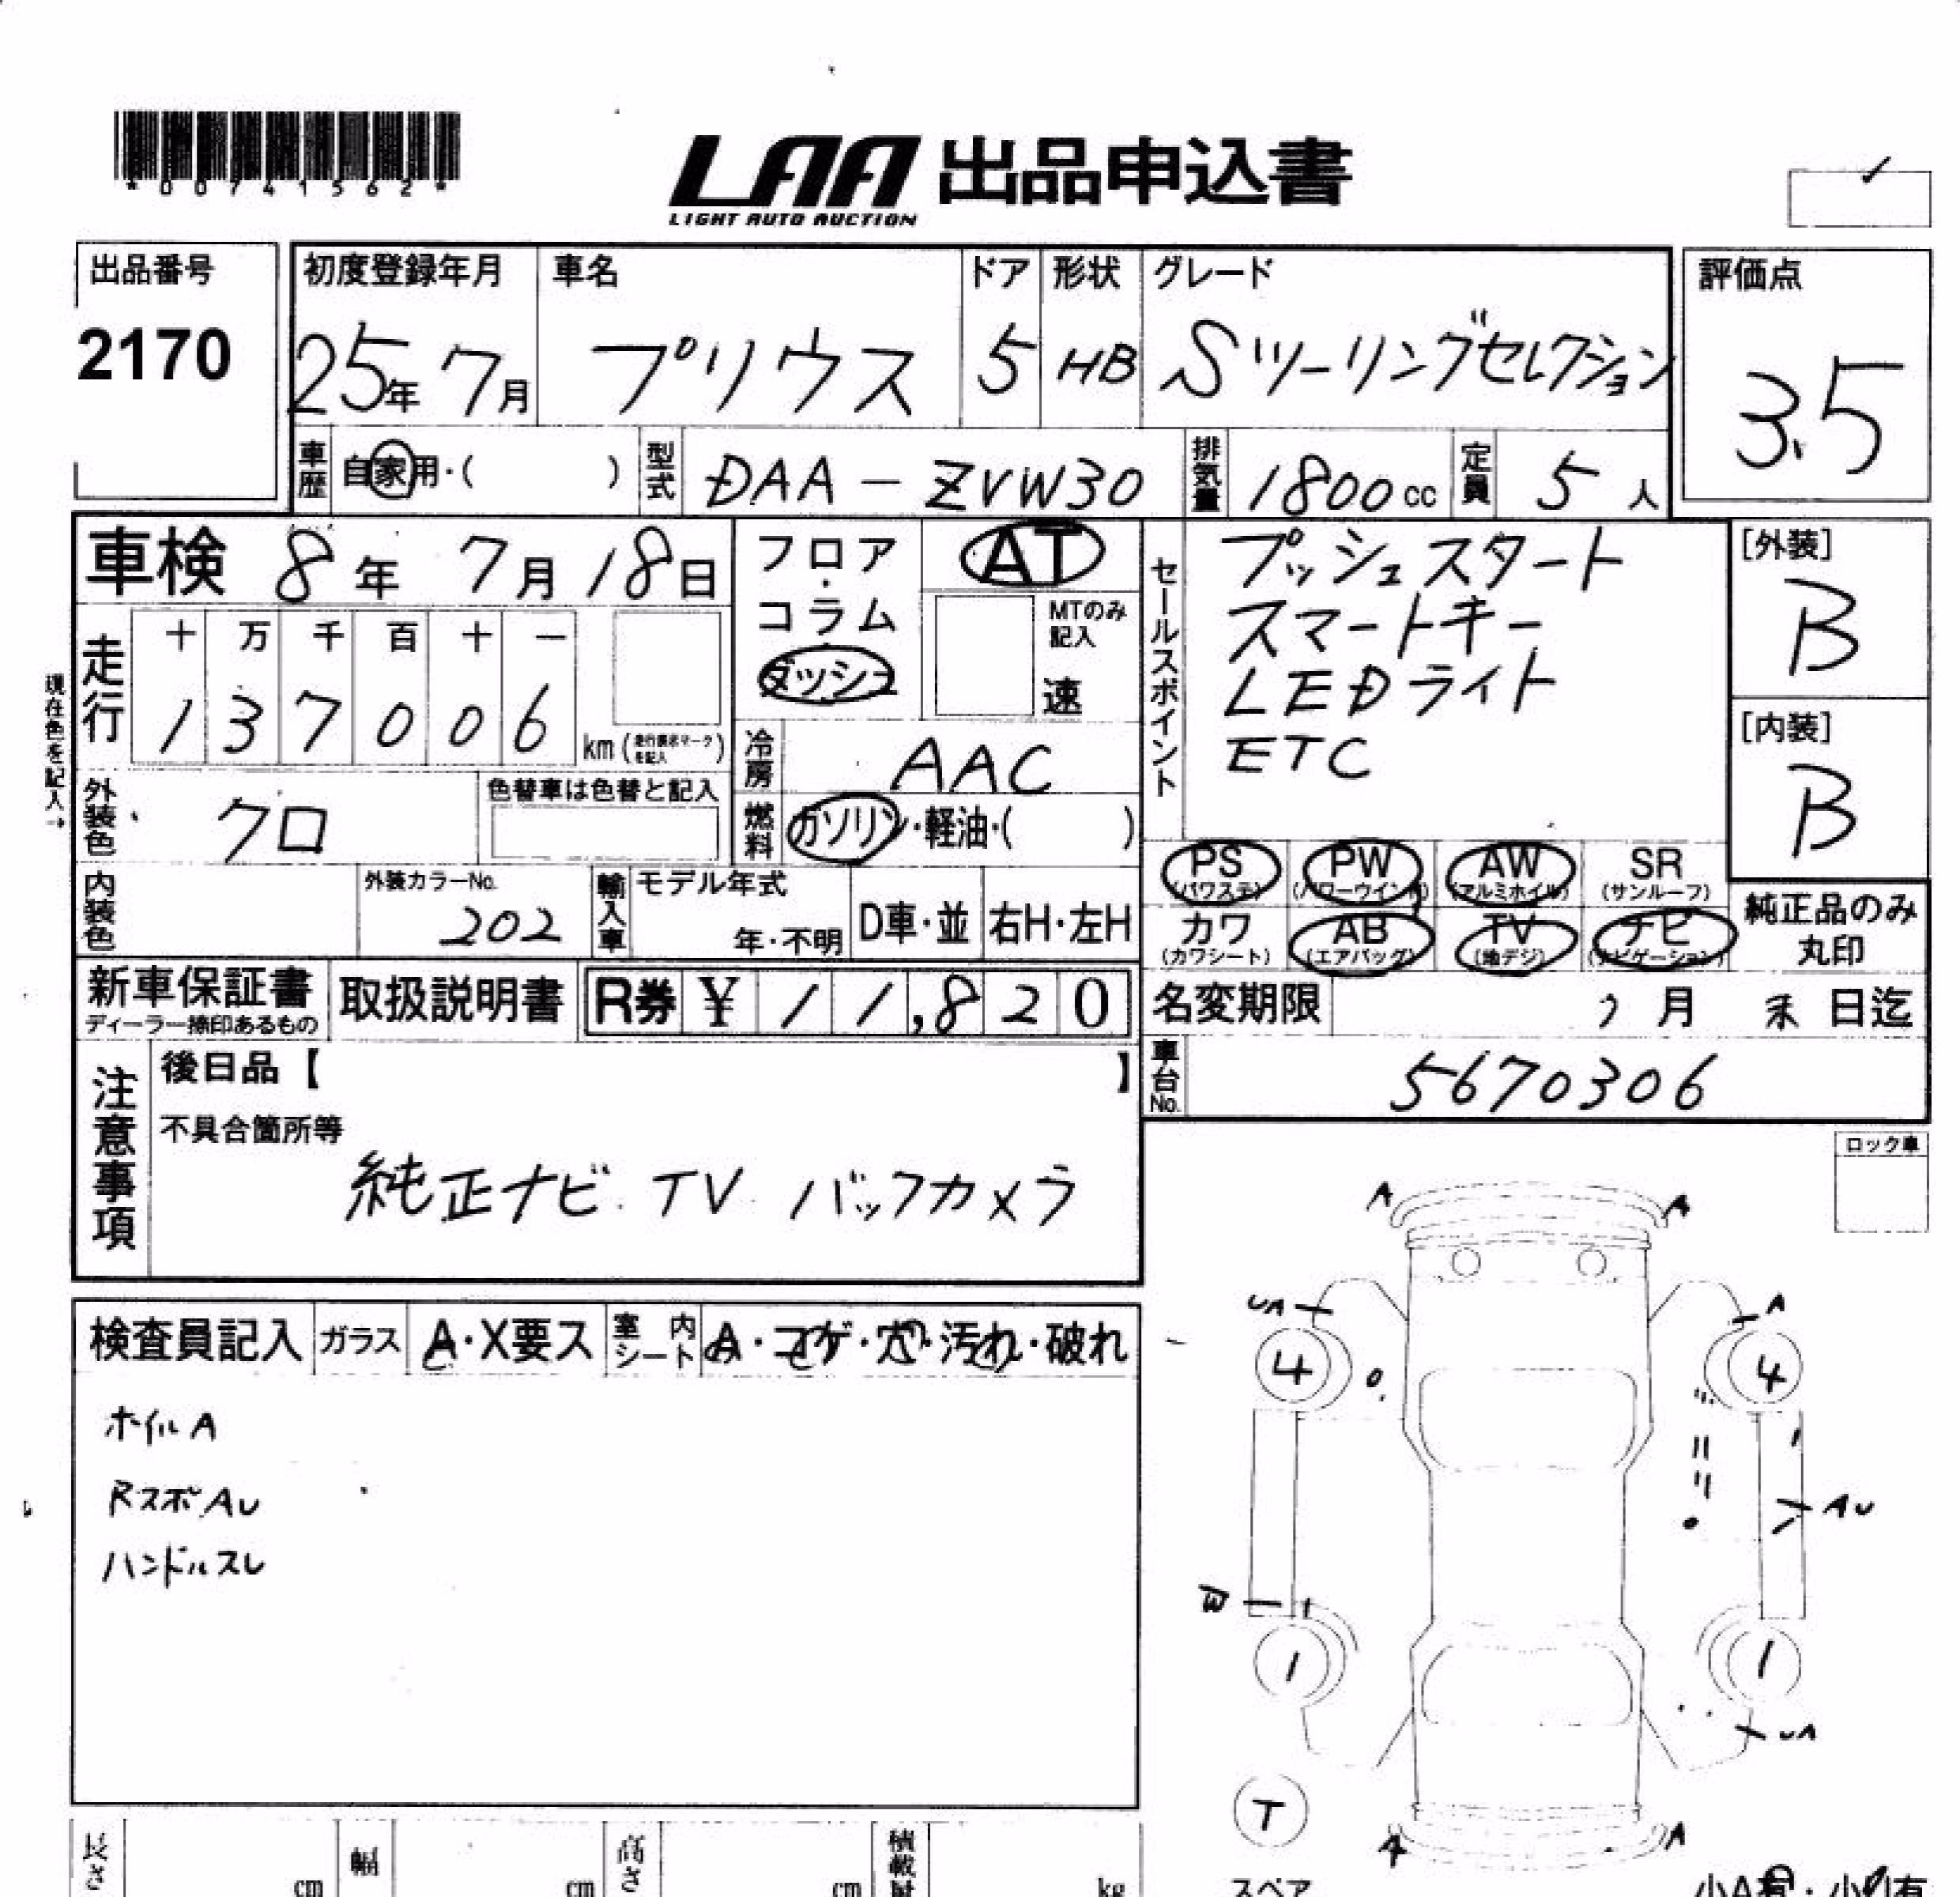 *00741562*
LAA 出品申込書
LIGHT AUTO AUCTION
出品番号
2170
初度登録年月 車名 ドア 形状 グレード
25年 7月 プリウス 5 HB Sツーリングセレクション
評価点
3.5
車歴 自家用・( ) 型式 DAA-ZVW30 排気量 1800cc 定員 5人
車検 8年 7月 18日
フロア・コラム・ダッシュ
AT
MTのみ記入
速
セールスポイント
プッシュスタート
スマートキー
LEDライト
ETC
[外装]
B
[内装]
B
現在色を記入→
走行 十 万 千 百 十 一
1 3 7 0 0 6 km
冷房 AAC
燃料 ガソリン・軽油・( )
外装色 クロ 色替車は色替と記入
内装色 外装カラーNo. 202
輸入車 モデル年式 年・不明 D車・並 右H・左H
PS (パワステ) PW (パワーウインド) AW (アルミホイル) SR (サンルーフ)
カワ (カワシート) AB (エアバッグ) TV (地デジ) ナビ (ナビゲーション)
純正品のみ丸印
新車保証書 ディーラー捺印あるもの 取扱説明書 R券 ¥11,820
名変期限 7月 末日迄
車台No. 5670306
注意事項 後日品【 】
不具合箇所等
純正ナビ TV バックカメラ
ロック車
検査員記入 ガラス A・X要ス 室内シート A・コゲ・穴・汚れ・破れ
ホイルA
RスポAU
ハンドルスレ
A A
UA A
4 4
AU
W
1 1
UA
T
スペア
A A
長さ cm 幅 cm 高さ cm 積載量 kg
小A有・小U有